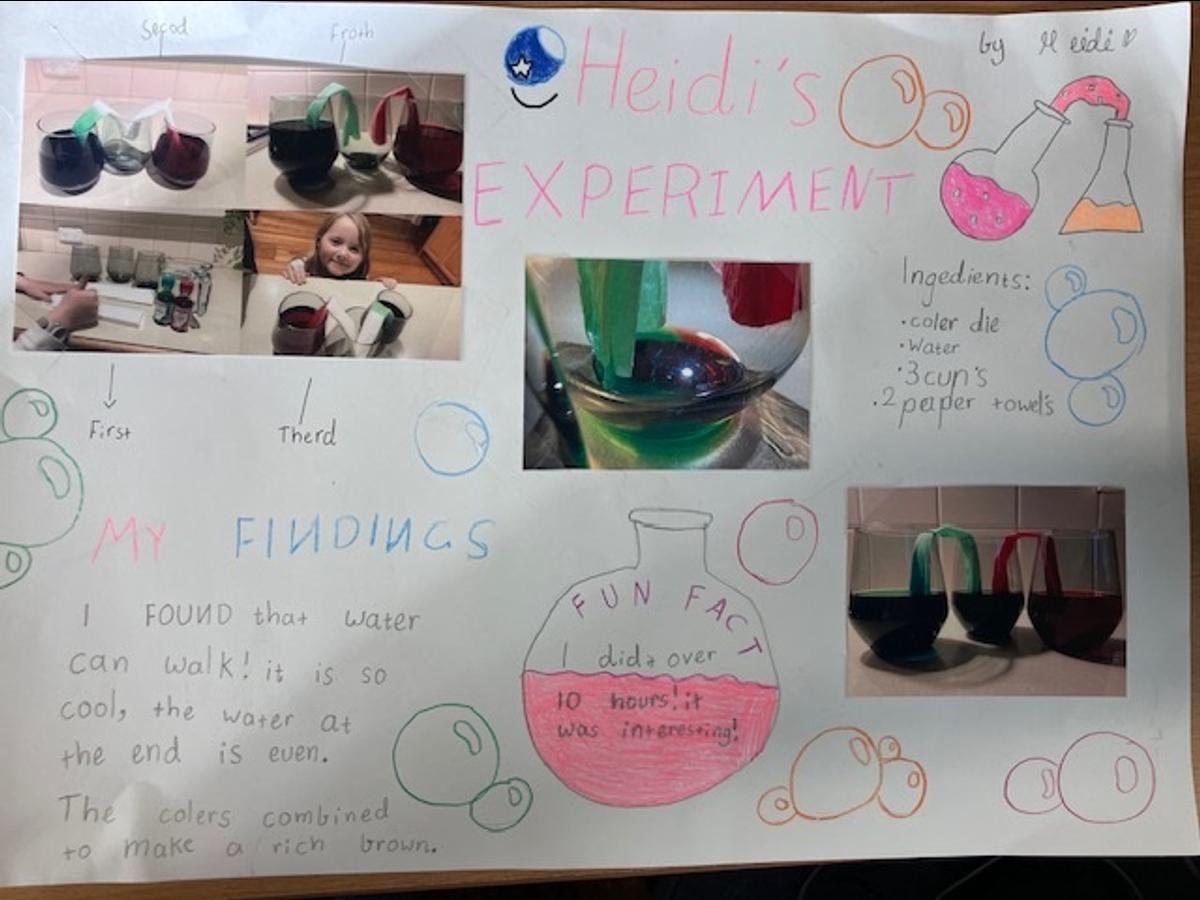 Secod
Froth
Heidi's
EXPERIMENT
by Heidi
First
Therd
Ingedients:
·coler die
·water
·3 cup's
·2 peaper towel's
MY FINDINGS
I FOUND that water
can walk! it is so
cool, the water at
the end is even.
The colers combined
to make a rich brown.
FUN FACT
I did over
10 hours! it
was interesting!